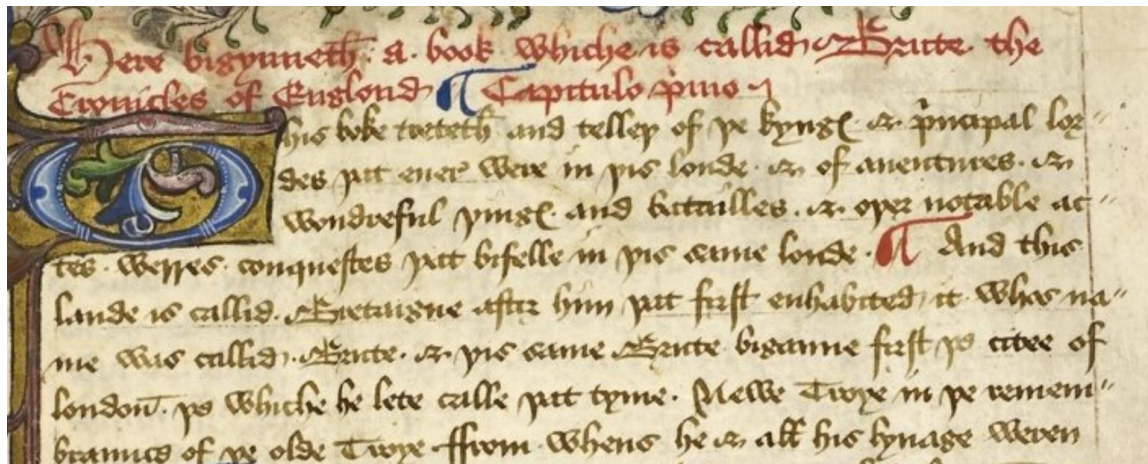 Here bigynneth. a. book whiche is callid. Brute. the
Cronicles of Englond ¶ Capitulo pͥmo
This boke treteth and telleþ of þe kyngꝭ. & pͥncipal lor〃
des þat eueꝛ were in þis londe. & of auentures. &
wondreful þingꝭ. and batailles. & oþer notable ac〃
tes. werres. conquestes þat bifelle in þis same londe. ¶ And this
lande is callid. Bretaigne after him þat first enhabited it whos na〃
me was callid. Brute. & þis same Brute biganne first þe citee of
londoñ. þe whiche he lete calle þat tyme. Newe Troye in þe remem〃
braunce of þe olde Troye ffrom whens he & all his lynage weren